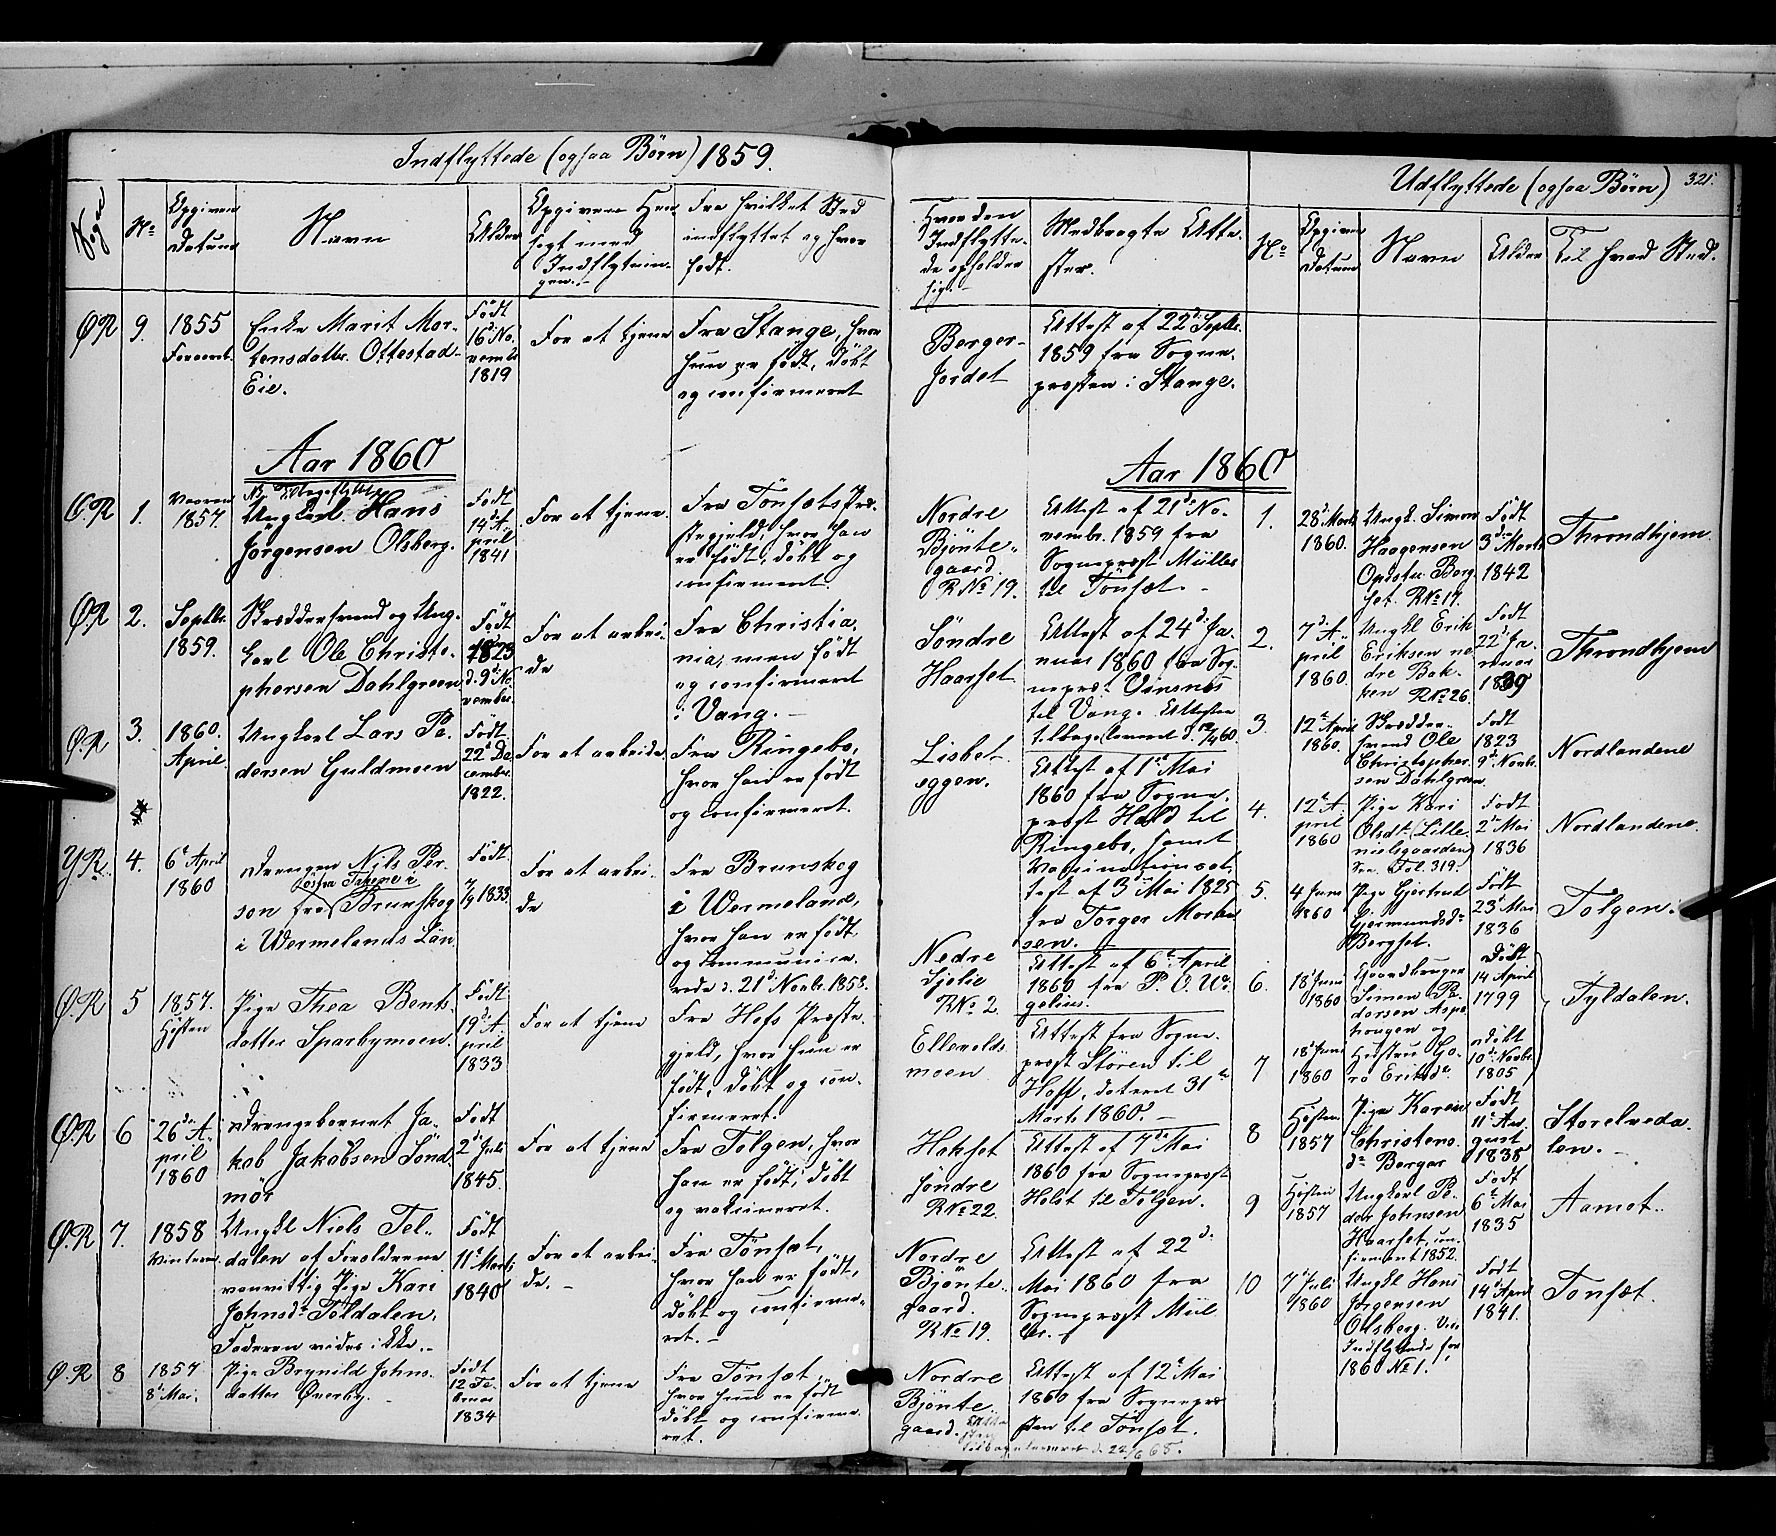 Indflyttede (ogsaa Børn) 1859.
Sogn
No
Opgiven Datum
Navn
Alder
Opgiven Hensigt med Indflytningen.
Fra hvilket Sted indflyttet og hvor født.
Hvor den Indflyttede opholder sig.
Medbragte Attester.
ØR 9. 1855
Enke Marit Mor-
tensdatter Ottestad-
Eie.
Født
16de No-
vembr
1819
For at tjene
Fra Stange, hvor
hun er født, døbt
og confirmeret
Berger-
jordet
Attest af 22de Septbr.
1859 fra Sogne-
præsten i Stange.
Aar 1860
ØR 1. Vaaren
1857.
Ungkarl Hans
Jørgensen Olsberg.
Født
14de A-
pril
1841
For at tjene.
Fra Tønsæts Præ-
stegjeld, hvor han
er født, døbt og
confirmeret
Nordre
Bjønte-
gaard
R No 19.
Attest af 21de No-
vembr. 1859 fra
Sognepræst Müller
til Tønsæt. -
ØR 2. Septbr.
1859.
Skræddersvend og Ung-
karl Ole Christo-
phersen Dahlgreen
Født
1823
d. 9de No-
vember
For at arbei-
de
Fra Christia-
nia, men født
og confirmeret
i Vang. -
Søndre
Haarset
Attest af 24de Ja-
nuar 1860 fra Sog-
nepræst Vinsnes
til Vang. Attesten
tilbageleveret d. 12/4 60.
Ø.R 3. 1860.
April.
Ungkarl Lars Pe-
dersen Guldmoen
Født
22de De-
cember
1822.
For at arbeide
Fra Ringebo,
hvor han er født
og confirmeret.
Lisbet-
eggen.
Attest af 1ste Mai
1860 fra Sogne-
præst Hald til
Ringebo, samt
Vaccinationsat-
test af 3die Mai 1825
fra Torger Morten-
sen.
YR. 4. 6te April
1860
Drengen Nils Per-
son fra Brunskog
i Wermelands Län
Født
7/9 1833.
For at arbei-
de
Fra Brunskog
i Wermeland,
hvor han er født
og communice-
rede d. 21de Novbr. 1858.
Nedre
Sjølie
R No 2.
Attest af 6te April
1860 fra P. O. We-
gelius.
ØR 5 1857.
Høsten
Pige Thea Bents-
datter Sparbymoen.
Født
19de A-
pril
1833
For at tjene
Fra Hofs Præste-
gjeld, hvor hun er
født, døbt og con-
firmeret.
Ellevolds-
moen
Attest fra Sogne-
præst Støren til
Hoff, dateret 31te
Marts 1860. -
ØR 6 26de A-
pril
1860
Drengebarnet Ja-
kob Jakobsen Sønd-
mør
Født
2den Juli
1845.
For at tjene
Fra Tolgen, hvor
han er født, døbt
og vakcineret.
Hakset
søndre
R No 22.
Attest af 7de Mai
1860 fra Sognepræst
Holst til Tolgen.
Ø.R 7. 1858
Vinteren
Ungkl Niels Tel-
dalen af Forældrene
vanvittig Pige Kari
Johnsdr Toldalen.
Faderen vides ikke.
Født
11te Marts
1840
For at arbei-
de. -
Fra Tønsæt,
hvor han er født,
døbt og confirme-
ret. -
Nordre
Bjønte-
gaard.
R No 19.
Attest af 22de
Mai 1860 fra
Sognepræst Mül-
ler. -
Ø.R 8 1857
8de Mai.
Pige Brynild Johns-
datter Øverby. -
Født
12 Fe-
bruar
1834
For at tjene
Fra Tønsæt,
hvor hun er født
døbt og confirme-
ret.
Nordre
Bjønte-
gaard.
Attest af 12te Mai
1860 fra Sognepræ-
sten til Tønsæt.
Attesten tilbageleveret d. 22/6 65.
Udflyttede (ogsaa Børn) 321.
No
Opgiven Datum
Navn
Alder
Til hvad Sted.
Aar 1860
1. 28de Marts
1860.
Ungk. Simon
Haagensen
Opdstu Berg-
set. R No 17.
Født
3die Marts
1842
Throndhjem.
2. 7de A-
pril
1860.
Ungkl Erik
Eriksen ne-
dre Bak-
ken R No 26.
Født
22de Ja-
nuar
1839
Throndhjem
3 12te April
1860.
Skrædder-
svend Ole
Christopher-
sen Dahlgreen
Født
1823
9de Novbr.
Nordlandene
4. 12te A-
pril
1860
Pige Kari
Olsdr. (Lille-
nielsgaarden
See Fol. 319.
Født
2den Mai
1836
Nordlandene.
5. 4 Juni
1860
Pige Gjertrud
Gjermundsdr
Bergset.
Født
23de Mai
1836
Tolgen.
6. 18de Juni
1860
Gaardbruger
Simen Pe-
dersen Aspe-
haugen og
Døbt
14 April
1799
Tyldalen.
7 18de Juni
1860
Hustru Go-
rø Eriksdr.
døbt
10de Novbr.
1805
8 Høsten
1857
Pige Karen
Christens-
dr Berger
Født
11te Au-
gust
1838
Storelveda-
len. -
9 Høsten
1857
Ungkarl Pe-
der Johnsen
Haarset, con-
firmeret 1852.
Født
6te Mai
1835
Aamot.
10 7de Juli
1860
Ungkl Hans
Jørgensen
Olsberg. Vii
Indflyttede for
1860 No 1.
Født
14de April
1841.
Tønsæt.